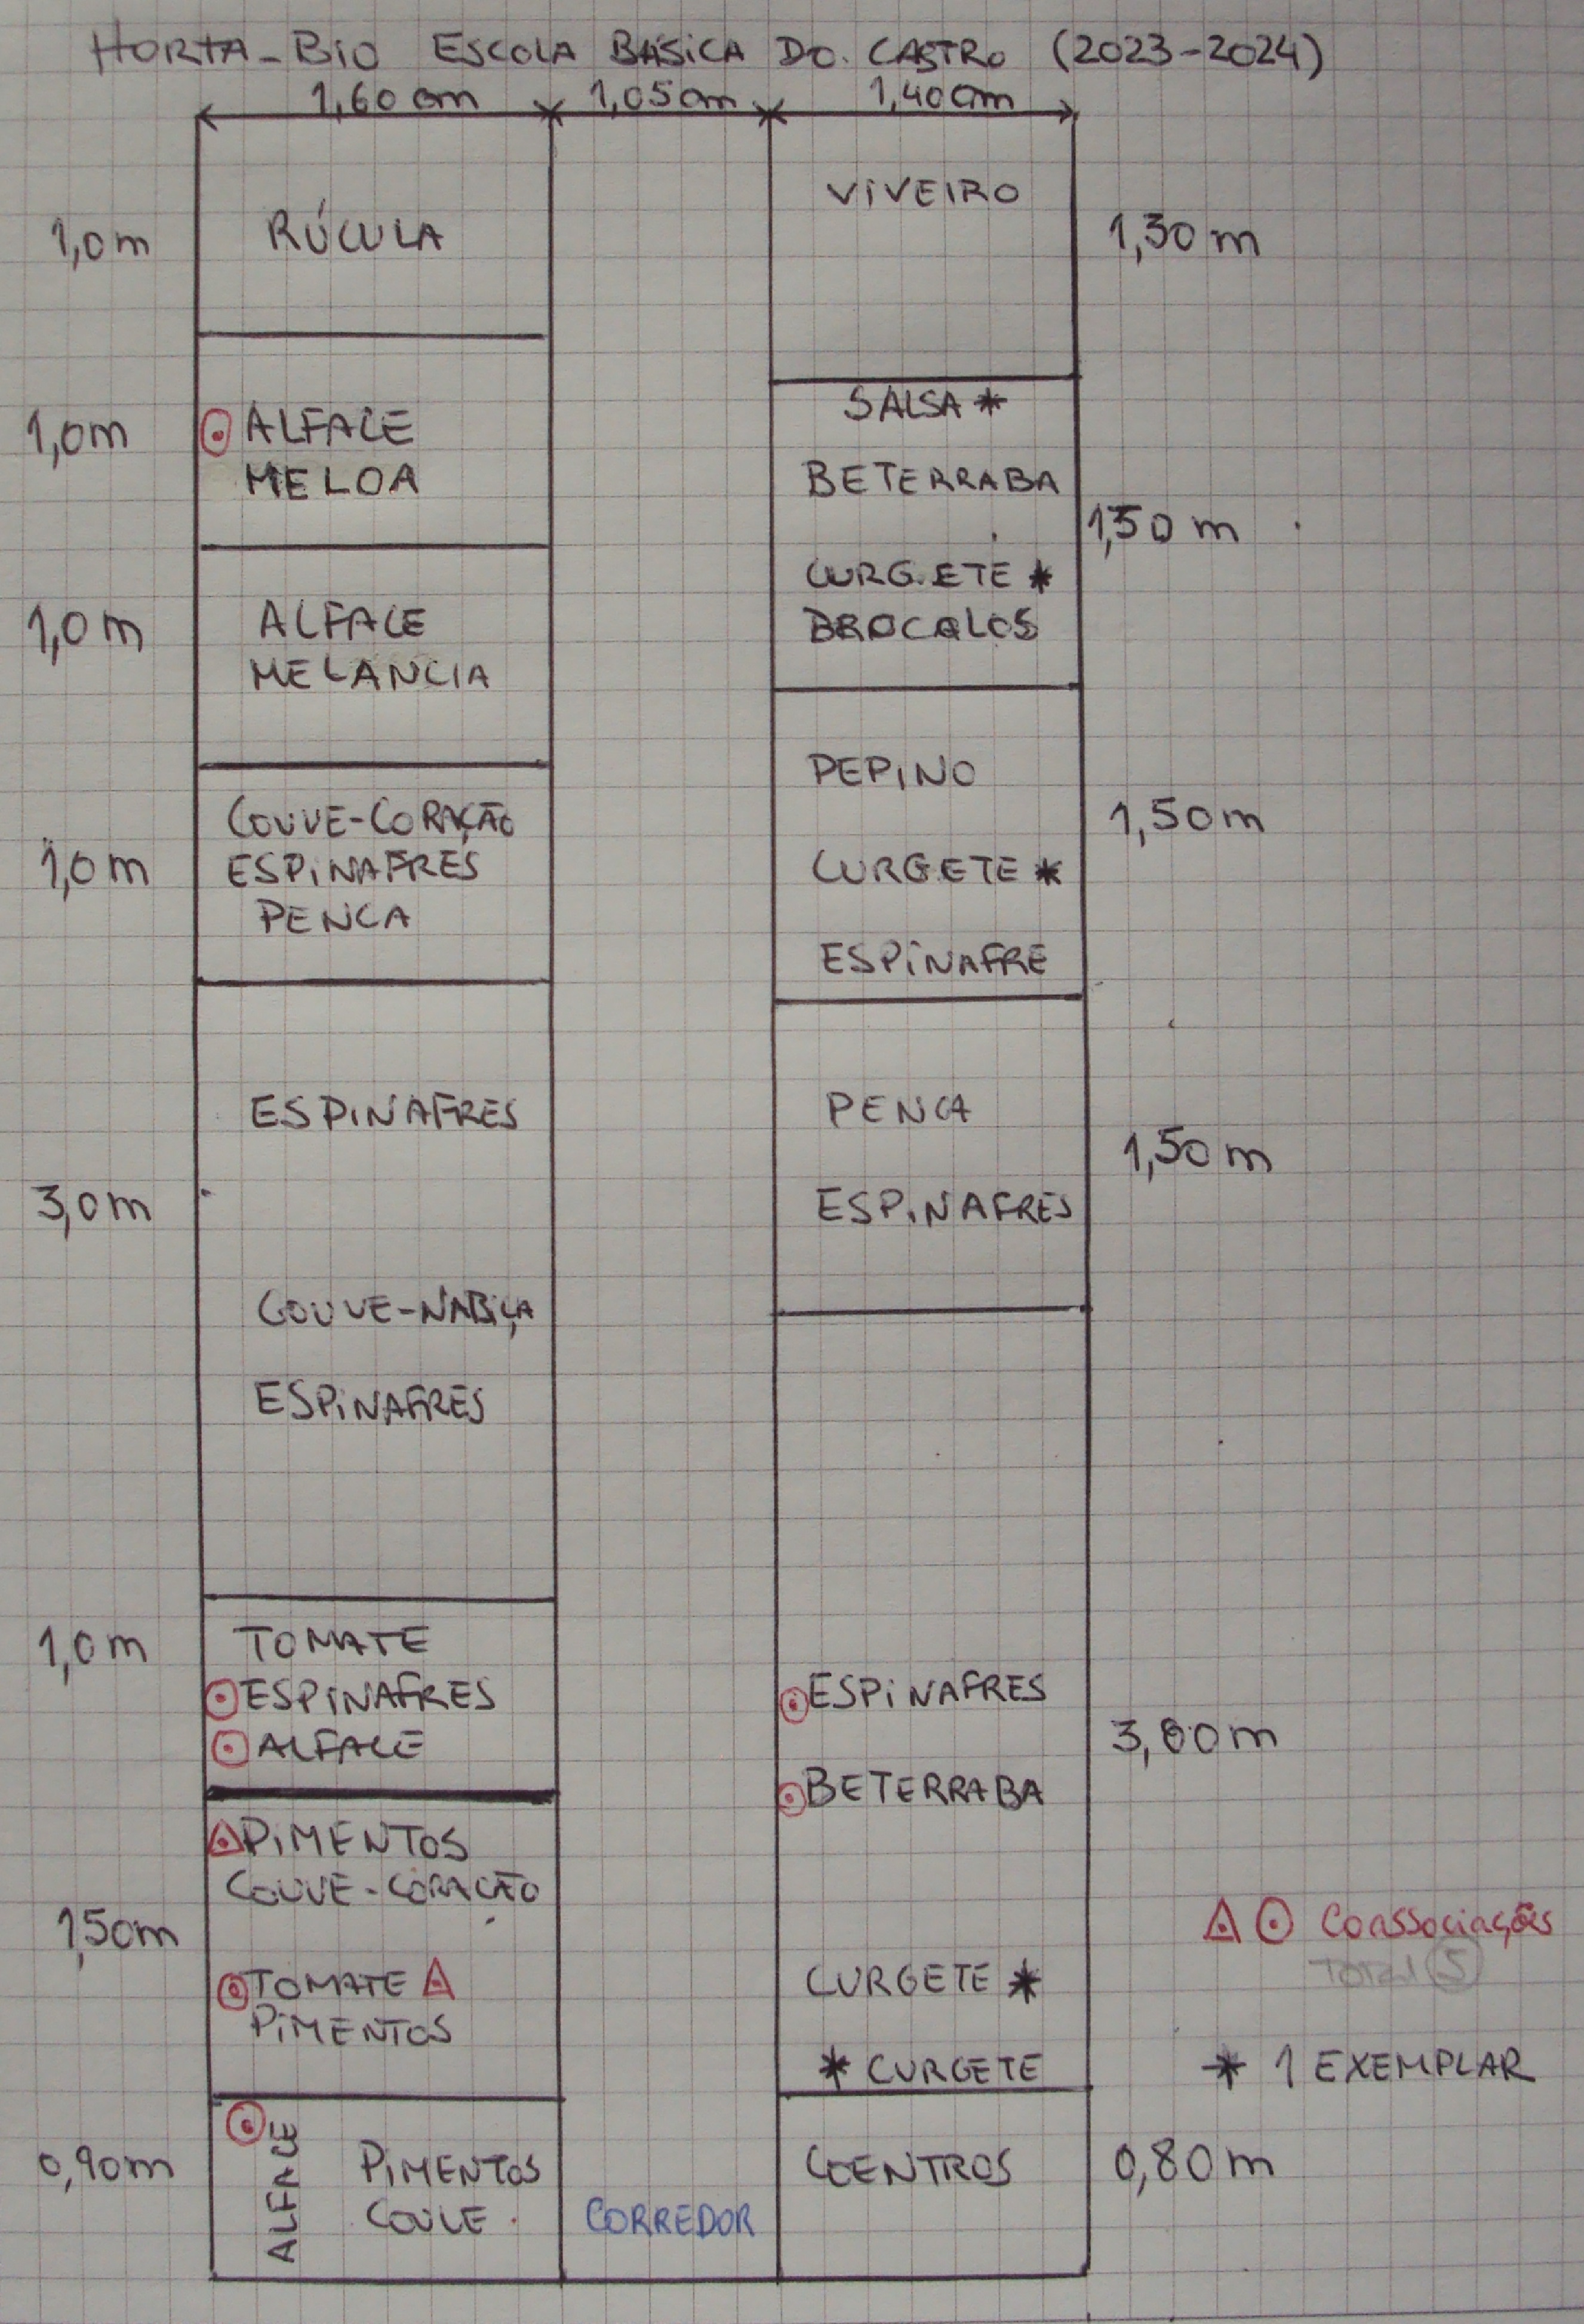 HORTA-BIO ESCOLA BÁSICA DO. CASTRO (2023-2024)
1,60 cm 1,05 cm 1,40 cm
1,0 m
RÚCULA
1,0 m
ALFACE
MELOA
1,0 m
ALFACE
MELANCIA
1,0 m
COUVE-CORAÇÃO
ESPINAFRES
PENCA
3,0 m
ESPINAFRES
COUVE-NABIÇA
ESPINAFRES
1,0 m
TOMATE
ESPINAFRES
ALFACE
1,50 m
PIMENTOS
COUVE-CORAÇÃO
TOMATE
PIMENTOS
0,90 m
ALFACE
PIMENTOS
COUVE
CORREDOR
VIVEIRO
1,30 m
SALSA *
BETERRABA
CURGETE *
BROCOLOS
1,50 m
PEPINO
CURGETE *
ESPINAFRE
1,50 m
PENCA
ESPINAFRES
1,50 m
ESPINAFRES
BETERRABA
CURGETE *
* CURGETE
3,00 m
COENTROS
0,80 m
Coassociações
TOTAL 5
* 1 EXEMPLAR